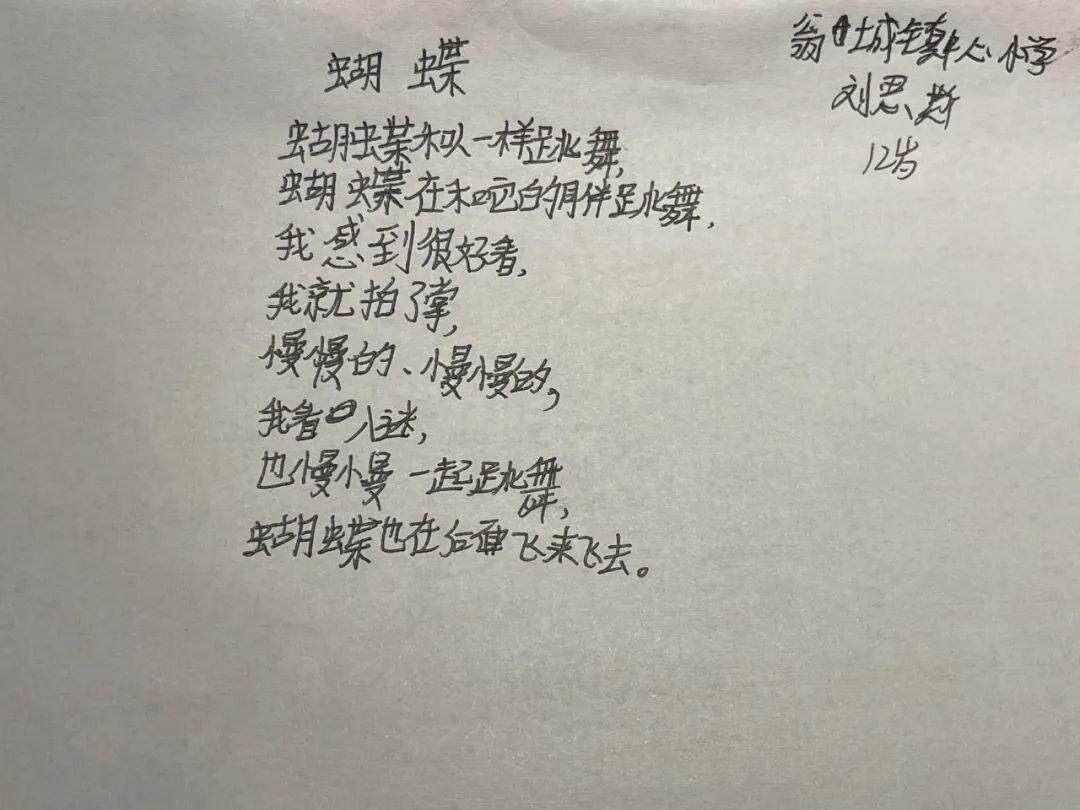 蝴蝶
翁城镇中心小学
刘思彤
12岁
蝴蝶似一样跳舞,
蝴蝶在和它的伴跳舞,
我感到很好看,
我就拍了掌,
慢慢的、慢慢的,
我看入迷,
也慢慢一起跳舞,
蝴蝶也在后面飞来飞去。